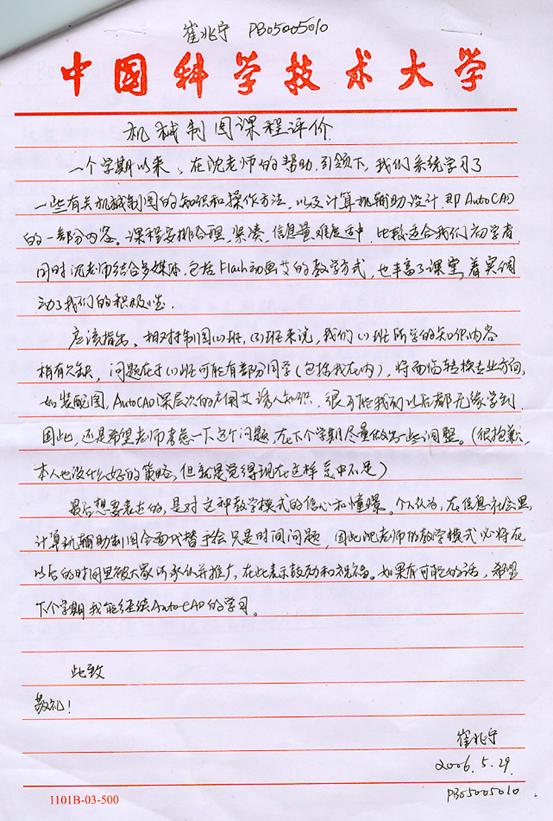 崔兆宁 PB05005010
中国科学技术大学
机械制图课程评价
一个学期以来，在沈老师的帮助、引领下，我们系统学习了
一些有关机械制图的知识和操作方法，以及计算机辅助设计，即AutoCAD
的一部分内容。课程安排合理、紧凑，信息量难度适中，比较适合我们初学者，
同时沈老师结合多媒体，包括Flash动画等的教学方式，也丰富了课堂，着实调
动了我们的积极性。
应该指出，相对制图(2)班，(3)班来说，我们(1)班所学的知识内容
稍有欠缺，问题在于(1)班可能有部分同学（包括我在内），将面临转换专业方向，
如装配图，AutoCAD深层次的应用等诱人知识，很可能我们以后都无缘学到，
因此，还是希望老师考虑一下这个问题，在下个学期尽量做出一些调整。（很抱歉，
本人也没什么好的策略，但就是觉得现在这样美中不足）
最后想要表达的，是对这种教学模式的信心和憧憬。个人认为，在信息社会里，
计算机辅助制图全面代替手绘只是时间问题，因此沈老师的教学模式必将在
以后的时间里被大家所承认并推广，在此表示鼓励和祝福。如果有可能的话，希望
下个学期我能继续AutoCAD的学习。
此致
敬礼！
崔兆宁
2006.5.29.
PB05005010
1101B-03-500